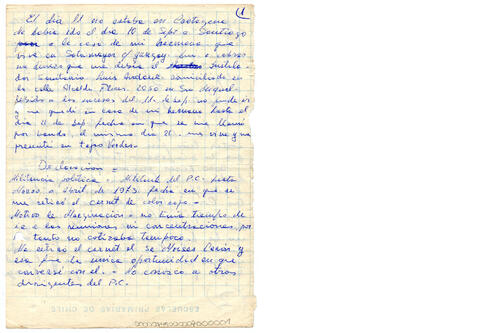 1
El día 11 no estaba en Cartagena
me había ido el día 10 de Sept a Santiago
a la casa de mi hermana que
vive en Sotomayor c/ y a cobrar
un dinero que me debía el
Luis domiciliado en
la calle Alcalde Flores. 2050 en San Miguel.
debido a los sucesos del 11 de Sep. no pude ir
y me quedé en casa de mi hermana hasta el
día 21 de Sep. fecha en que se me llamó
por bando, el mismo día 21. me vine y me
presenté en Tejas Verdes.
Declaración =
Militancia política = Militante del P.C. hasta
Marzo o Abril de 1973. fecha en que se
me retiró el carnet de color rojo.
Motivo de Marginación = no tenía tiempo de
ir a las reuniones ni concentraciones, por
tanto no cotizaba tampoco.
Me retiró el carnet el Sr Moises y
esa fue la única oportunidad en que
conversé con el. = No conosco a otros
dirigentes del P.C.
ESCUELAS PRIMARIAS DE CHILE